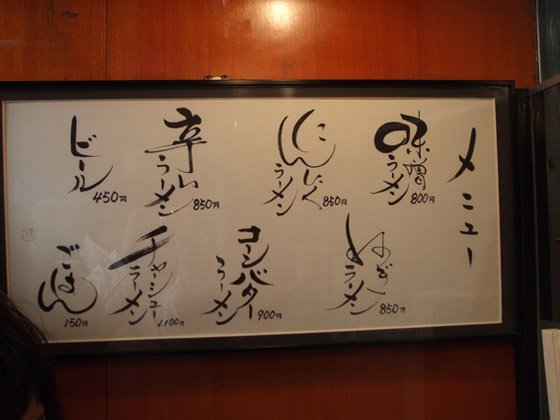 メニュー
味噌のラーメン
800円
ねぎラーメン
850円
にんにくラーメン
850円
コーンバターラーメン
900円
辛いラーメン
850円
チャーシューラーメン
1100円
ビール
450円
ごはん
150円